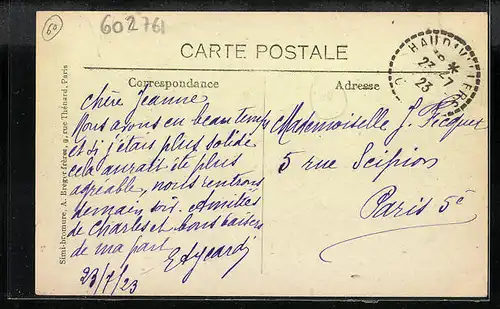 60
602761
CARTE POSTALE
Correspondance
Adresse
HAUDIV
23
23
Chère Jeanne
Nous avons eu beau temps
et si j'étais plus solide
cela aurait été plus
agréable, nous rentrons
demain soir. Amitiés
de Charles et bons baisers
de ma part
23/7/23
Mademoiselle J.
5 rue Scipion
Paris 5e
Simi-bromure, A. Breger frères, 9, rue Thénard, Paris